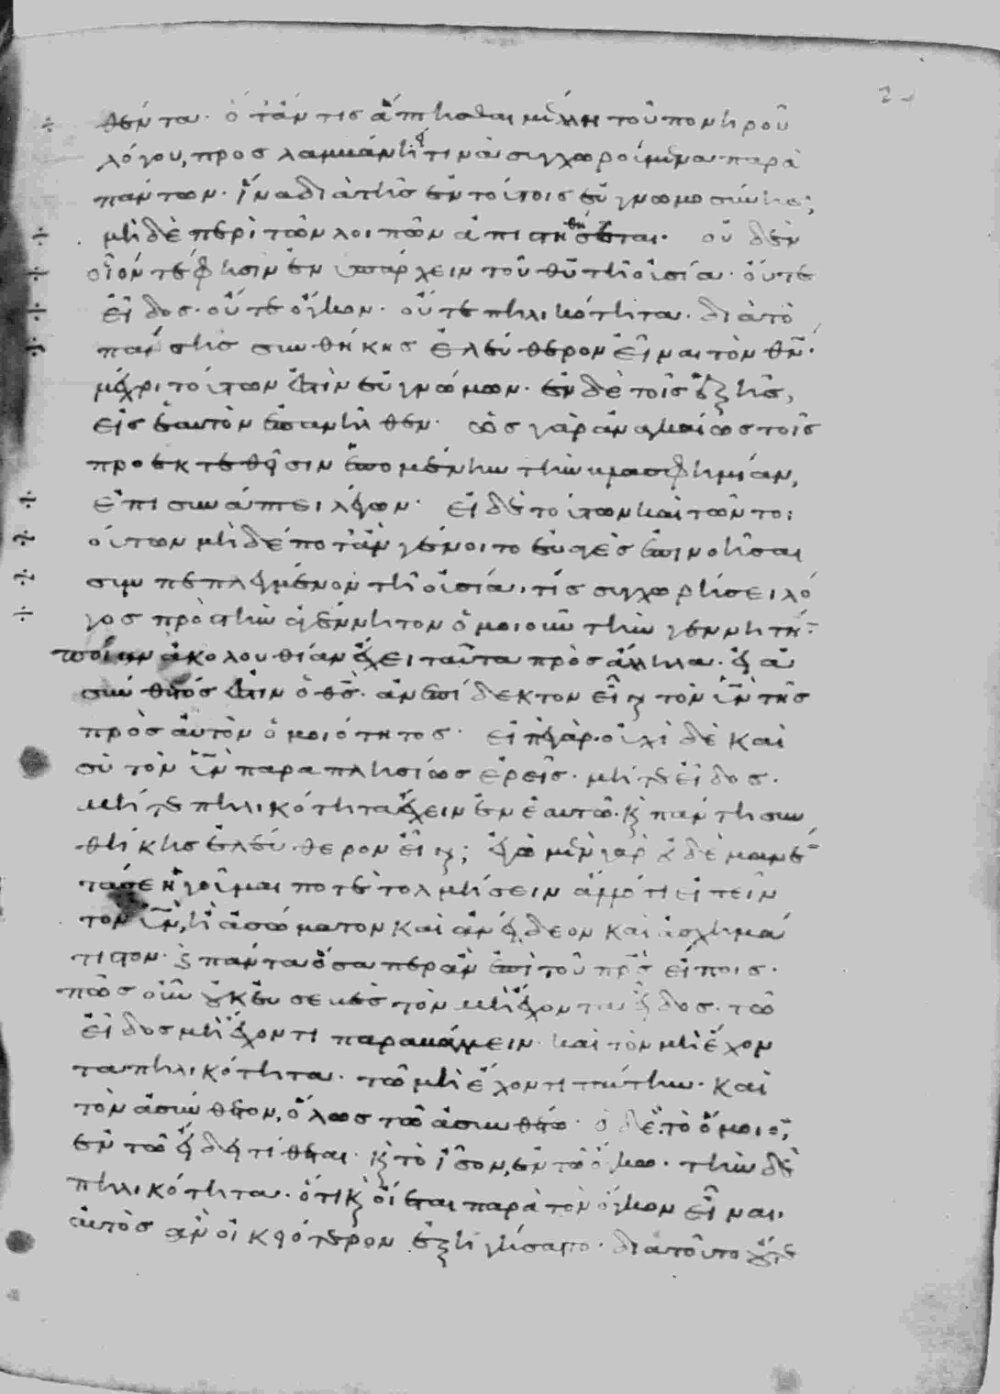 θέντα· ὁτάν τις ἅπτεσθαι μέλλη τοῦ πονηροῦ
λόγου, προσλαμβάνει τινὰ συγχωρούμενα παρὰ
πάντων· ἵνα διὰ τῆς ἐν τούτοις εὐγνωμοσύνης,
μὴ δὲ περὶ τῶν λοιπῶν ἀπιστηθῆται· οὐδὲν
οἷόν τε φησὶν ἐνυπάρχειν τοῦ θυ τῆ οὐσία· οὔτε
εἶδος· οὔτε ὄγκον· οὔτε πηλικότητα· διὰ τὸ
πάσης συνθήκης ἐλεύθερον εἶναι τὸν θν·
μέχρι τούτων ἐστὶν εὐγνώμων· ἐν δὲ τοῖς ἑξῆς,
εἰς ἑαυτὸν ἐπανῆλθεν· ὡς γὰρ ἀναγκαίως τοῖς
προεκτεθεῖσιν ἑπομένην τὴν βλασφημίαν,
ἐπισυνάπτει λέγων· εἰ δὲ τούτων καὶ τῶν τοι
ούτων μὴδέποτ ἂν γένοιτο εὐαγὲς ἐπινοῆσαι
συμπεπλεγμένον τῆ οὐσία, τίς συγχωρήσει λό
γος πρὸς τὴν ἀγέννητον ὁμοιοῦν τὴν γεννητήν·
ποίαν ἀκολουθίαν ἔχει ταῦτα πρὸς ἄλληλα· εἰ ἀ
σύνθετός ἐστιν ὁ θς· ἀνεπίδεκτον εἶναι τὸν υν τῆς
πρὸς αὐτὸν ὁμοιότητος· εἰπὲ γάρ· οὐχὶ δὲ καὶ
σὺ τὸν υν παραπλησίως ἐρεῖς· μήτε εἶδος·
μήτε πηλικότητα ἔχειν ἐν ἑαυτῶ· καὶ πάντη συν
θήκης ἐλεύθερον εἶναι; ἐγὼ μὲν γὰρ οὐδὲ μανέν
τα σε ἡγοῦμαι ποτὲ τολμήσειν ἄλλό τι εἰπεῖν
τὸν υν, ἢ ἀσώματον καὶ ἀνείδεον καὶ ἀσχημά
τιστον· καὶ πάντα ὅσα περ ἂν ἐπὶ τοῦ πρς εἴποις·
πῶς οὖν οὐκ εὐσεβὲς τὸν μὴ ἔχοντα εἶδος· τῶ
εἶδος μὴ ἔχοντι παραβάλλειν· καὶ τὸν μὴ ἔχον
τα πηλικότητα· τῶ μὴ ἔχοντι ταύτην· καὶ
τὸν ἀσύνθετον, ὅλως τῶ ἀσυνθέτω· ὁ δὲ τὸ ὅμοιον,
ἐν τῶ εἴδει τίθεται· καὶ τὸ ἴσον, ἐν τῶ ὄγκω· τὴν δὲ
πηλικότητα· ὅτι καὶ οἴεται παρὰ τὸν ὄγκον εἶναι,
αὐτὸς ἂν οἰκειότερον ἐξηγήσαιτο· διὰ τοῦτο οὔτε